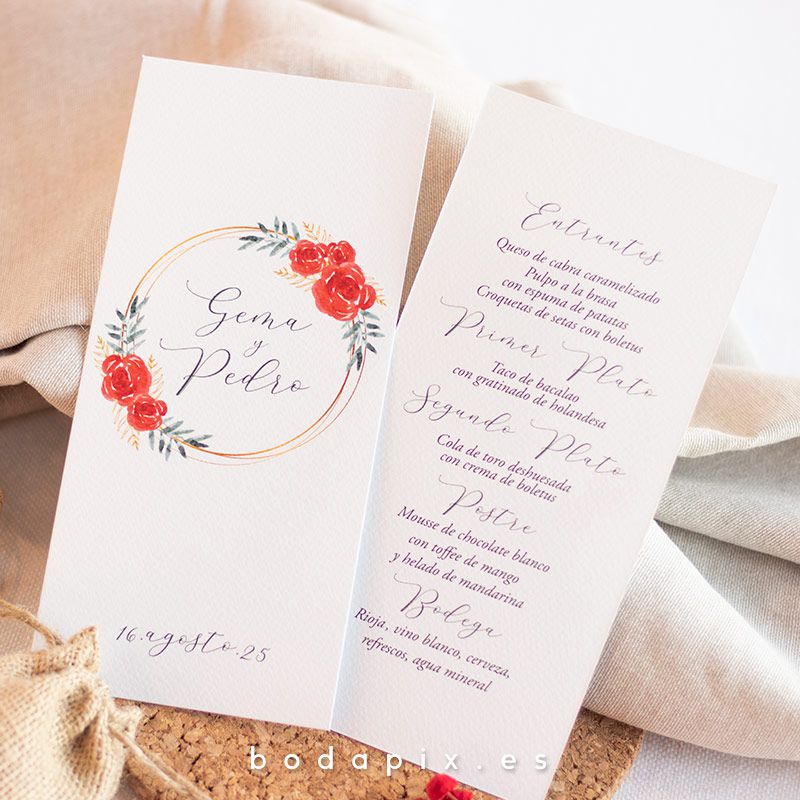 Gema
y
Pedro
16.agosto.25
Entrantes
Queso de cabra caramelizado
Pulpo a la brasa
con espuma de patatas
Croquetas de setas con boletus
Primer Plato
Taco de bacalao
con gratinado de holandesa
Segundo Plato
Cola de toro deshuesada
con crema de boletus
Postre
Mousse de chocolate blanco
con toffee de mango
y helado de mandarina
Bodega
Rioja, vino blanco, cerveza,
refrescos, agua mineral
bodapix.es